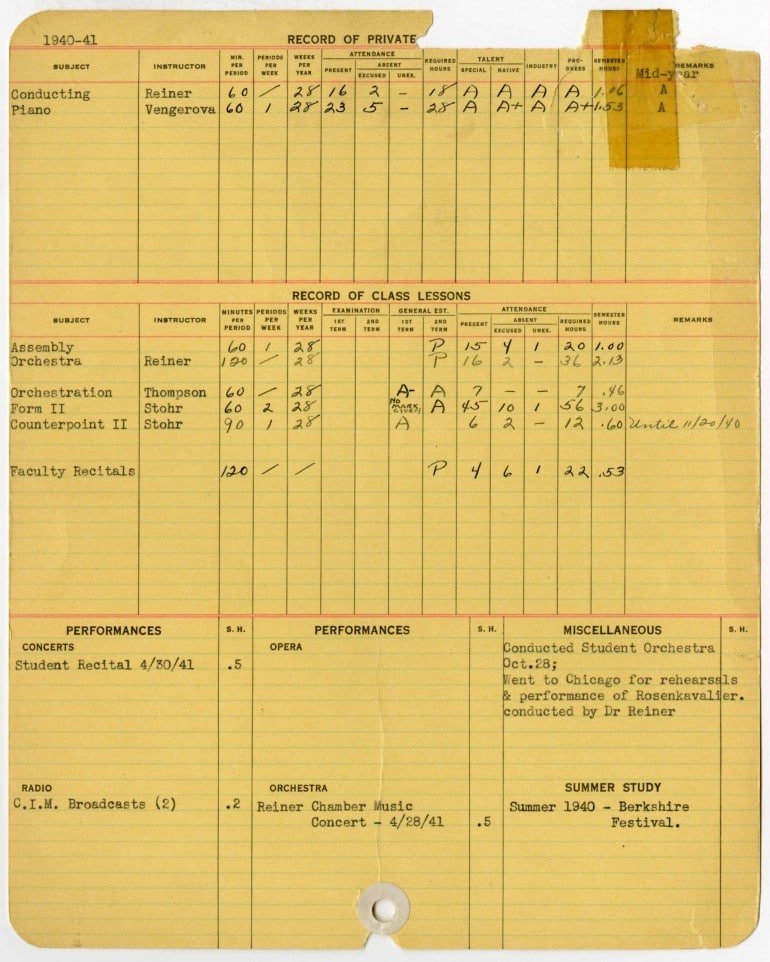 1940-41 RECORD OF PRIVATE
SUBJECT INSTRUCTOR MIN. PER PERIOD PERIODS PER WEEK WEEKS PER YEAR ATTENDANCE PRESENT ABSENT EXCUSED UNEX. REQUIRED HOURS TALENT SPECIAL NATIVE INDUSTRY PRO-GRESS SEMESTER HOURS REMARKS
Mid-year
Conducting Reiner 60 / 28 16 2 - 18 A A A A 1.06 A
Piano Vengerova 60 1 28 23 5 - 28 A A+ A A+ 1.53 A
RECORD OF CLASS LESSONS
SUBJECT INSTRUCTOR MINUTES PER PERIOD PERIODS PER WEEK WEEKS PER YEAR EXAMINATION 1ST TERM 2ND TERM GENERAL EST. 1ST TERM 2ND TERM ATTENDANCE PRESENT ABSENT EXCUSED UNEX. REQUIRED HOURS SEMESTER HOURS REMARKS
Assembly 60 1 28 P 15 4 1 20 1.00
Orchestra Reiner 120 / 28 P 16 2 - 36 2.13
Orchestration Thompson 60 / 28 A- A 7 - - 7 .46
Form II Stohr 60 2 28 No MARK GIVEN A 45 10 1 56 3.00
Counterpoint II Stohr 90 1 28 A 6 2 - 12 .60 Until 11/20/40
Faculty Recitals 120 / / P 4 6 1 22 .53
PERFORMANCES S. H. PERFORMANCES S. H. MISCELLANEOUS S. H.
CONCERTS OPERA Conducted Student Orchestra
Student Recital 4/30/41 .5 Oct.28;
Went to Chicago for rehearsals
& performance of Rosenkavalier.
conducted by Dr Reiner
RADIO ORCHESTRA SUMMER STUDY
C.I.M. Broadcasts (2) .2 Reiner Chamber Music Summer 1940 - Berkshire
Concert - 4/28/41 .5 Festival.